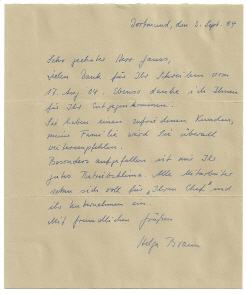 Dortmund, den 2. Sept. 04
Sehr geehrter Herr
vielen Dank für Ihr Schreiben vom
17. Aug. 04. Ebenso danke ich Ihnen
für Ihr Entgegenkommen.
Sie haben einen zufriedenen Kunden,
meine Familie wird Sie überall
weiterempfehlen.
Besonders aufgefallen ist mir Ihr
gutes Betriebsklima. Alle Mitarbeiter
setzen sich voll für „Ihren Chef“ und
ihr Unternehmen ein.
Mit freundlichen Grüßen
Helga Braun